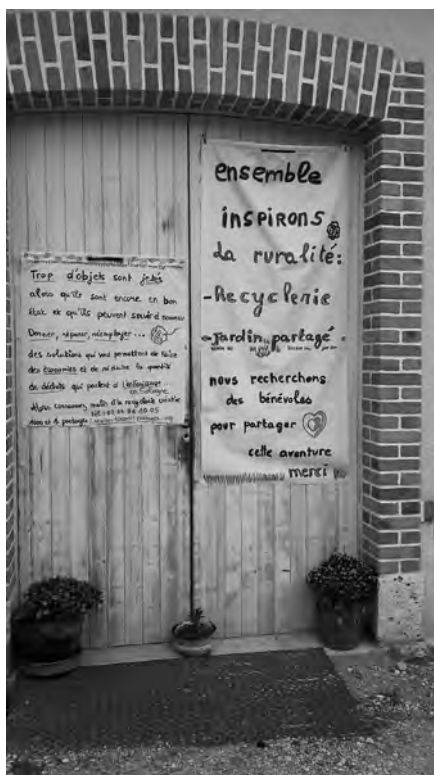 Trop d'objets sont jetés
alors qu'ils sont encore en bon
état et qu'ils peuvent
Donner, réparer, réemployer...
des solutions qui vous permettent de faire
des économies et de réduire la quantité
de déchets qui partent à
la recyclerie créative
1000 et 1 partages
ensemble
inspirons
la ruralité:
-Recyclerie
-Jardin partagé
nous recherchons
des bénévoles
pour partager
cette aventure
merci